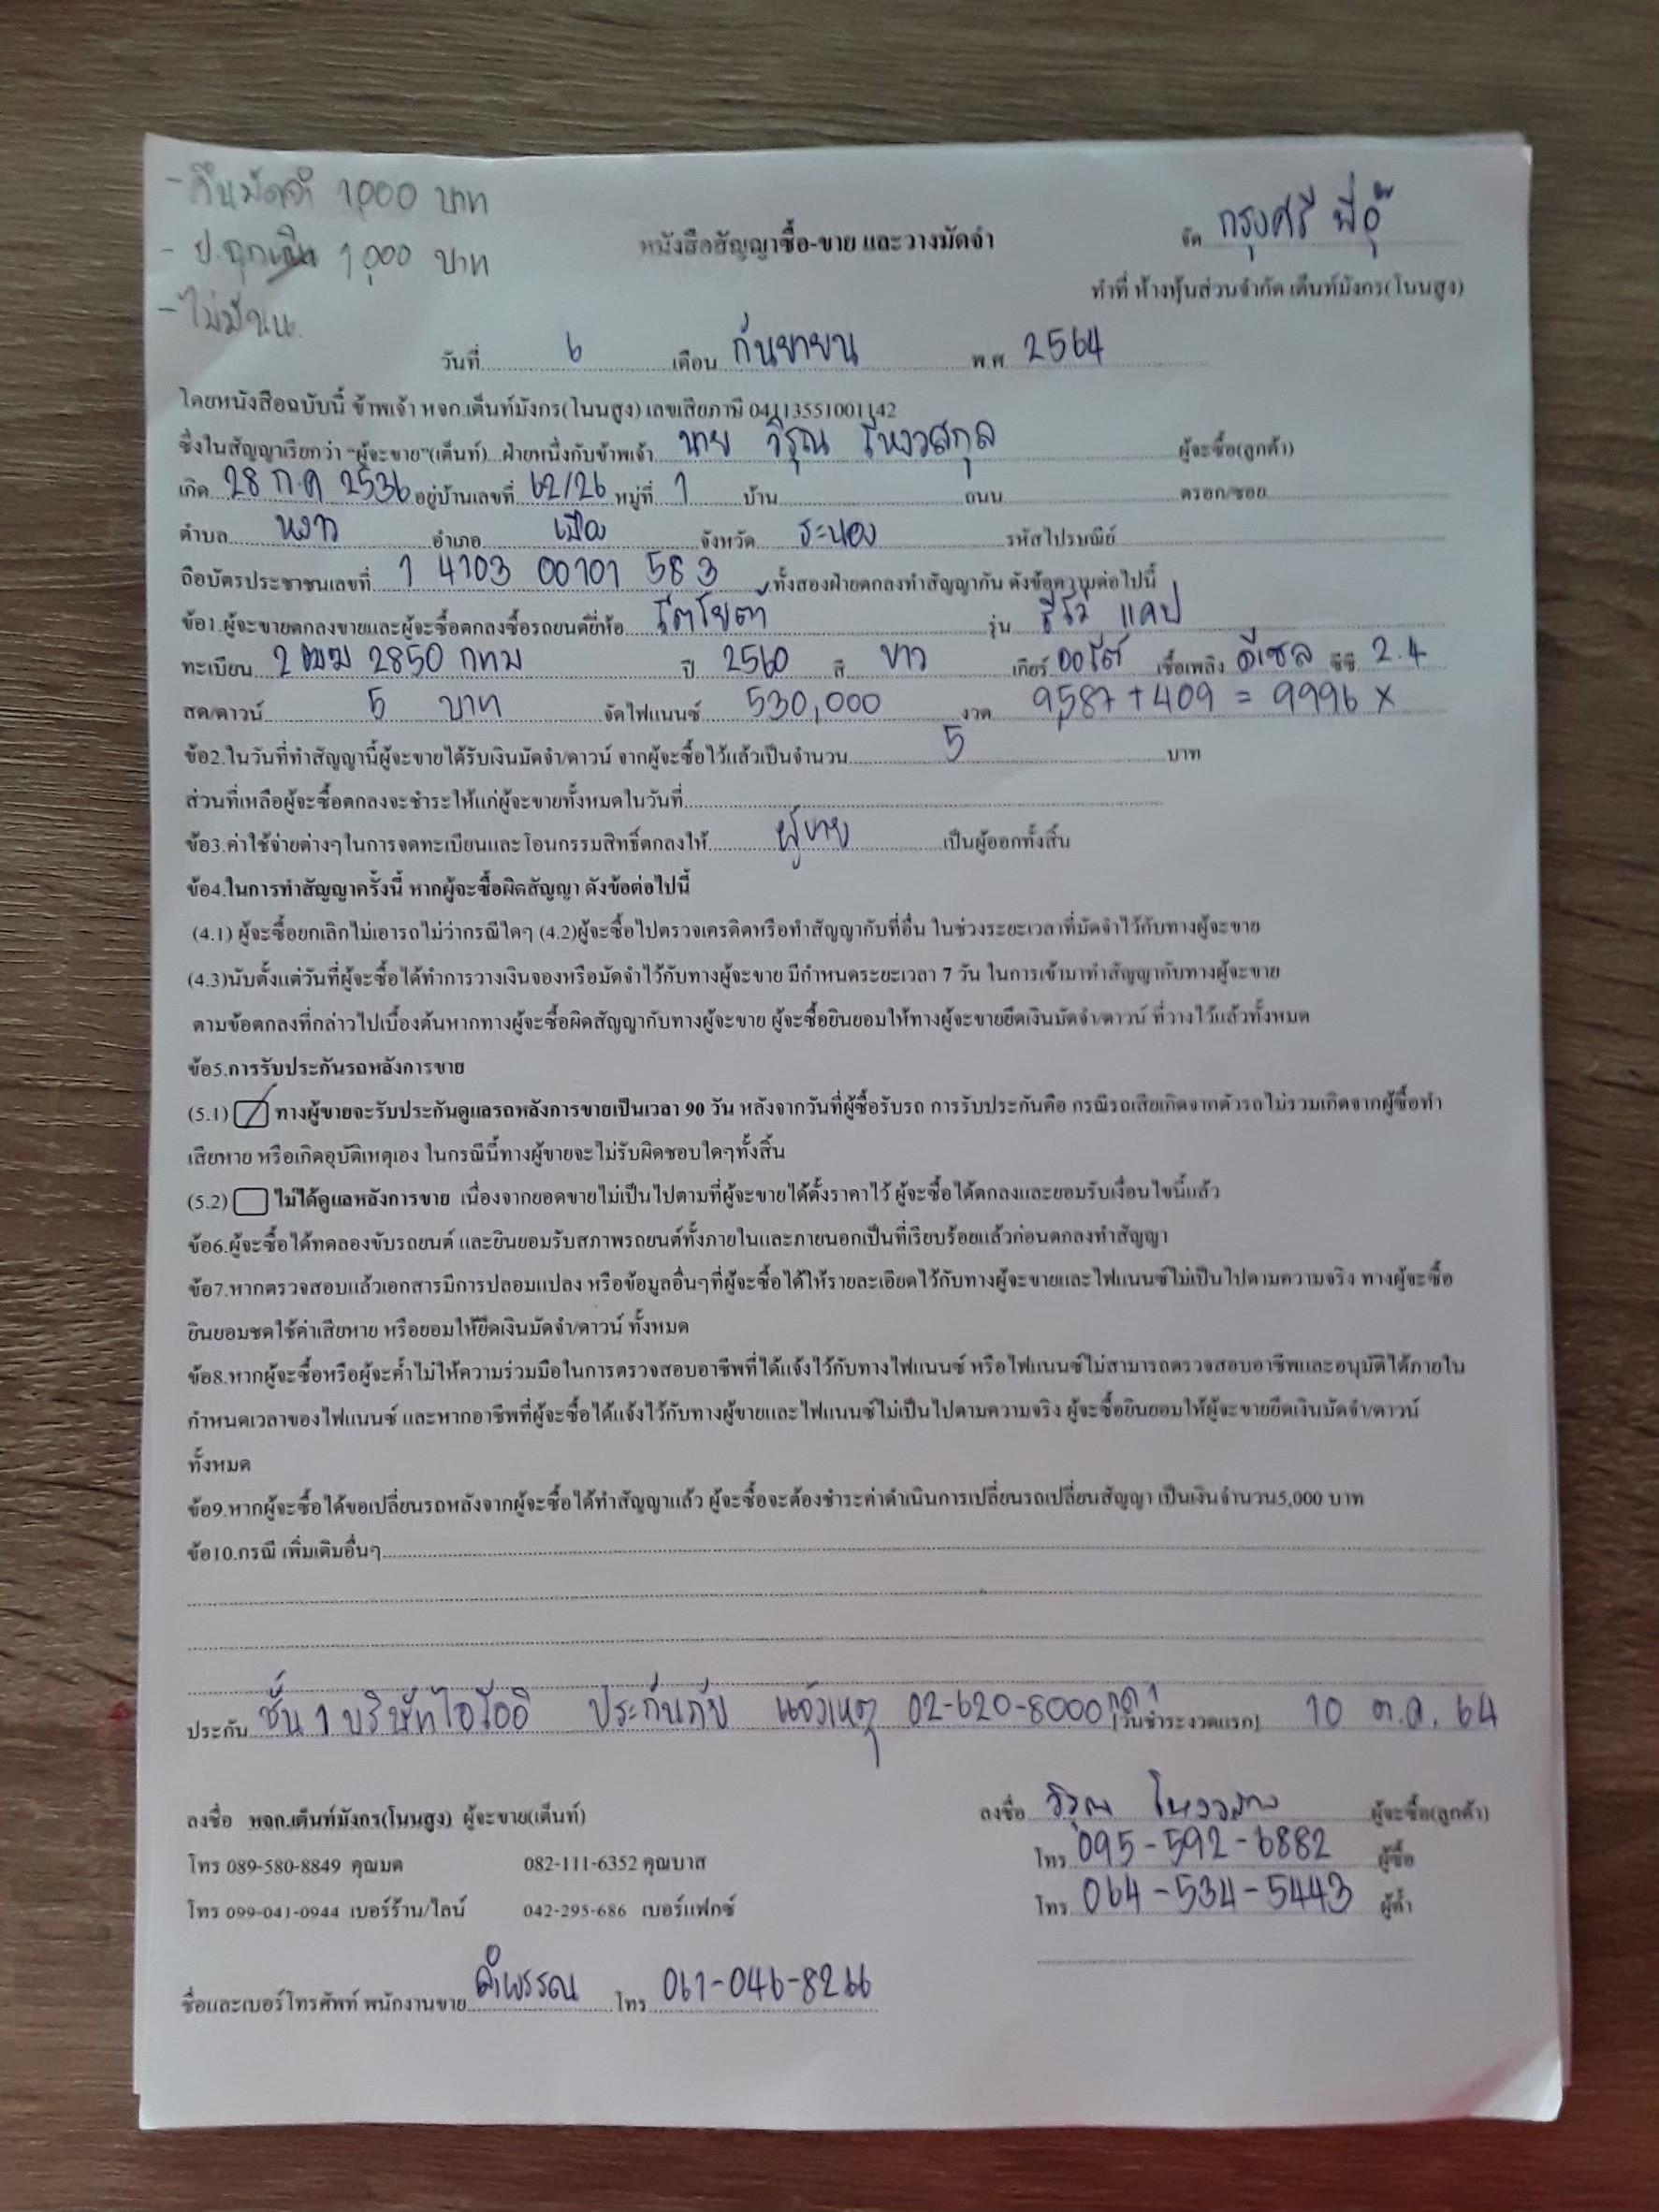 - คืนมัดจำ 1,000 บาท
- ป.ฉุกเฉิน 1,000 บาท
จัด กรุงศรี พี่อุ๊
หนังสือสัญญาซื้อ-ขาย และวางมัดจำ
ทำที่ ห้างหุ้นส่วนจำกัด เต็นท์มังกร(โนนสูง)
วันที่ 6 เดือน กันยายน พ.ศ 2564
โดยหนังสือฉบับนี้ ข้าพเจ้า หจก.เต็นท์มังกร(โนนสูง) เลขเสียภาษี 04113551001142
ซึ่งในสัญญาเรียกว่า "ผู้จะขาย"(เต็นท์) ฝ่ายหนึ่งกับข้าพเจ้า นาย วิรุณ โหงวสกุล ผู้จะซื้อ(ลูกค้า)
เกิด 28 ก.ค 2536 อยู่บ้านเลขที่ 62/26 หมู่ที่ 1 บ้าน ถนน ตรอก/ซอย
ตำบล หงาว อำเภอ เมือง จังหวัด ระนอง รหัสไปรษณีย์
ถือบัตรประชาชนเลขที่ 1 4103 00101 583 ทั้งสองฝ่ายตกลงทำสัญญากัน ดังข้อความต่อไปนี้
ข้อ1.ผู้จะขายตกลงขายและผู้จะซื้อตกลงซื้อรถยนต์ยี่ห้อ โตโยต้า รุ่น รีโว่ แคป
ทะเบียน 2ฒฆ 2850 กทม ปี 2560 สี ขาว เกียร์ ออโต้ เชื้อเพลิง ดีเซล ซีซี 2.4
สด/ดาวน์ 5 บาท จัดไฟแนนซ์ 530,000 งวด 9,587 + 409 = 9996 x
ข้อ2.ในวันที่ทำสัญญานี้ผู้จะขายได้รับเงินมัดจำ/ดาวน์ จากผู้จะซื้อไว้แล้วเป็นจำนวน 5 บาท
ส่วนที่เหลือผู้จะซื้อตกลงจะชำระให้แก่ผู้จะขายทั้งหมดในวันที่
ข้อ3.ค่าใช้จ่ายต่างๆในการจดทะเบียนและโอนกรรมสิทธิ์ตกลงให้ ผู้ขาย เป็นผู้ออกทั้งสิ้น
ข้อ4.ในการทำสัญญาครั้งนี้ หากผู้จะซื้อผิดสัญญา ดังข้อต่อไปนี้
(4.1) ผู้จะซื้อยกเลิกไม่เอารถไม่ว่ากรณีใดๆ (4.2)ผู้จะซื้อไปตรวจเครดิตหรือทำสัญญากับที่อื่น ในช่วงระยะเวลาที่มัดจำไว้กับทางผู้จะขาย
(4.3)นับตั้งแต่วันที่ผู้จะซื้อได้ทำการวางเงินจองหรือมัดจำไว้กับทางผู้จะขาย มีกำหนดระยะเวลา 7 วัน ในการเข้ามาทำสัญญากับทางผู้จะขาย
ตามข้อตกลงที่กล่าวไปเบื้องต้นหากทางผู้จะซื้อผิดสัญญากับทางผู้จะขาย ผู้จะซื้อยินยอมให้ทางผู้จะขายยึดเงินมัดจำ/ดาวน์ ที่วางไว้แล้วทั้งหมด
ข้อ5.การรับประกันรถหลังการขาย
(5.1) ทางผู้ขายจะรับประกันดูแลรถหลังการขายเป็นเวลา 90 วัน หลังจากวันที่ผู้ซื้อรับรถ การรับประกันคือ กรณีรถเสียเกิดจากตัวรถไม่รวมเกิดจากผู้ซื้อทำ
เสียหาย หรือเกิดอุบัติเหตุเอง ในกรณีนี้ทางผู้ขายจะไม่รับผิดชอบใดๆทั้งสิ้น
(5.2) ไม่ได้ดูแลหลังการขาย เนื่องจากยอดขายไม่เป็นไปตามที่ผู้จะขายได้ตั้งราคาไว้ ผู้จะซื้อได้ตกลงและยอมรับเงื่อนไขนี้แล้ว
ข้อ6.ผู้จะซื้อได้ทดลองขับรถยนต์ และยินยอมรับสภาพรถยนต์ทั้งภายในและภายนอกเป็นที่เรียบร้อยแล้วก่อนตกลงทำสัญญา
ข้อ7.หากตรวจสอบแล้วเอกสารมีการปลอมแปลง หรือข้อมูลอื่นๆที่ผู้จะซื้อได้ให้รายละเอียดไว้กับทางผู้จะขายและไฟแนนซ์ไม่เป็นไปตามความจริง ทางผู้จะซื้อ
ยินยอมชดใช้ค่าเสียหาย หรือยอมให้ยึดเงินมัดจำ/ดาวน์ ทั้งหมด
ข้อ8.หากผู้จะซื้อหรือผู้จะค้ำไม่ให้ความร่วมมือในการตรวจสอบอาชีพที่ได้แจ้งไว้กับทางไฟแนนซ์ หรือไฟแนนซ์ไม่สามารถตรวจสอบอาชีพและอนุมัติได้ภายใน
กำหนดเวลาของไฟแนนซ์ และหากอาชีพที่ผู้จะซื้อได้แจ้งไว้กับทางผู้ขายและไฟแนนซ์ไม่เป็นไปตามความจริง ผู้จะซื้อยินยอมให้ผู้จะขายยึดเงินมัดจำ/ดาวน์
ทั้งหมด
ข้อ9.หากผู้จะซื้อได้ขอเปลี่ยนรถหลังจากผู้จะซื้อได้ทำสัญญาแล้ว ผู้จะซื้อจะต้องชำระค่าดำเนินการเปลี่ยนรถเปลี่ยนสัญญา เป็นเงินจำนวน5,000 บาท
ข้อ10.กรณี เพิ่มเติมอื่นๆ
ประกัน ชั้น 1 บริษัทไอโออิ ประกันภัย แจ้งเหตุ 02-620-8000 กด 1 [วันชำระงวดแรก] 10 ต.ค. 64
ลงชื่อ หจก.เต็นท์มังกร(โนนสูง) ผู้จะขาย(เต็นท์) ลงชื่อ วิรุณ ผู้จะซื้อ(ลูกค้า)
โทร 089-580-8849 คุณมด 082-111-6352 คุณบาส โทร 095-592-6882 ผู้ซื้อ
โทร 099-041-0944 เบอร์ร้าน/ไลน์ 042-295-686 เบอร์แฟกซ์ โทร 064-534-5443 ผู้ค้ำ
ชื่อและเบอร์โทรศัพท์ พนักงานขาย คำพรรณ โทร 061-046-8266